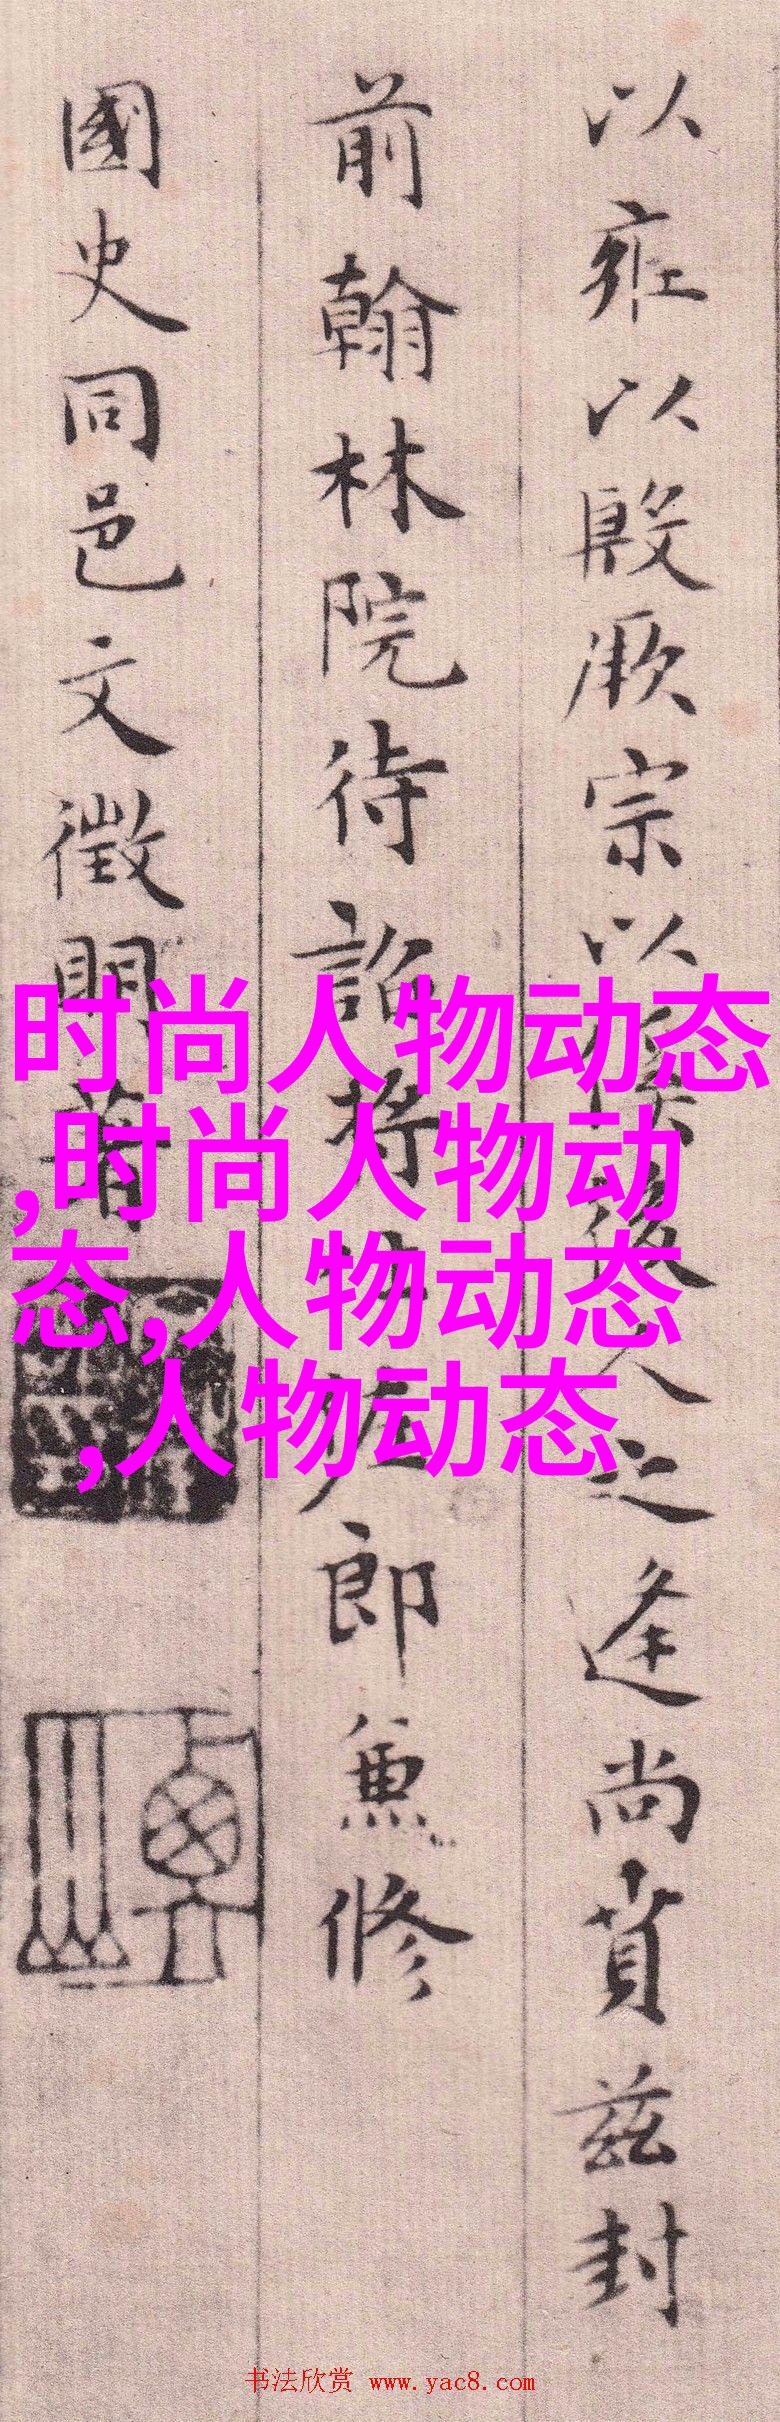 以雍以殷厥宗以俟後人之逢尚賁茲封
前翰林院待詔將仕佐郎兼修
國史同邑文徵明著
时尚人物动态
,时尚人物动
态,人物动态
,人物动态
书法欣赏 www.yac8.com